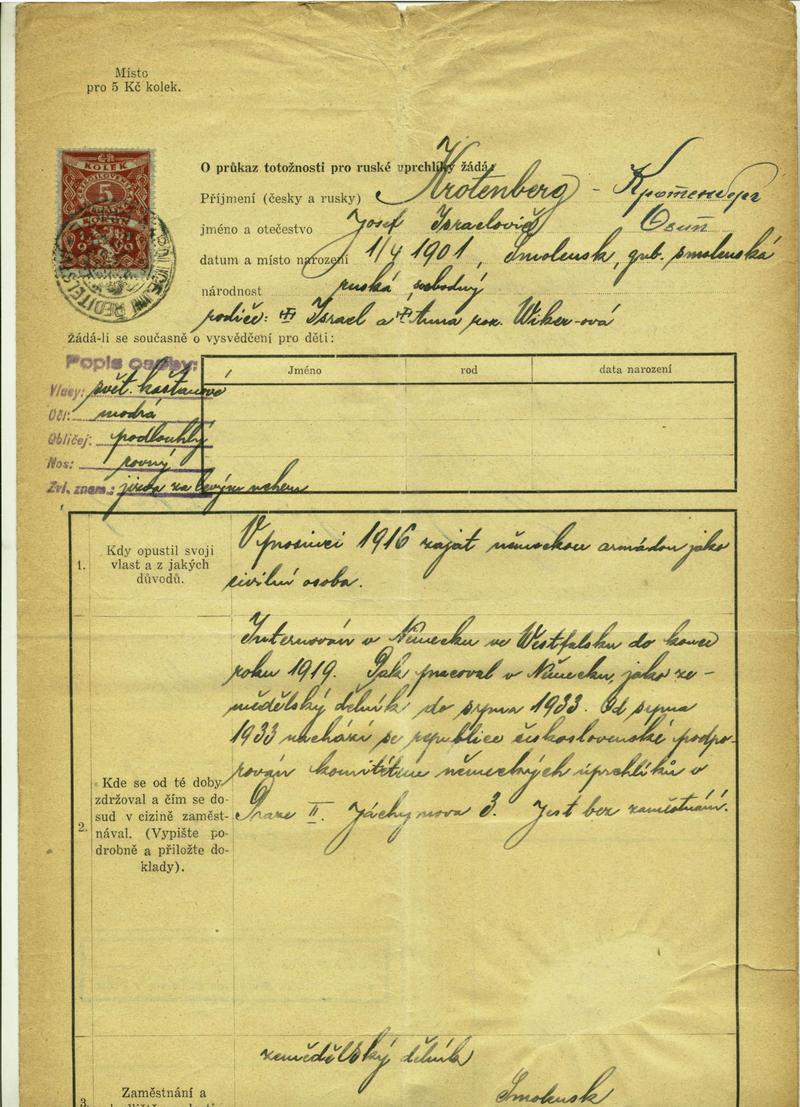 Místo
pro 5 Kč kolek.
KOLEK
5
O průkaz totožnosti pro ruské uprchlíky žádá:
Příjmení (česky a rusky) Krotenberg - Кротенберг
jméno a otečestvo Josef Israelovič Осип
datum a místo narození 1/4 1901, Smolensk, gub. smolenská
národnost ruská, svobodný
rodiče: Israel a Anna roz. Wiker-ová
Žádá-li se současně o vysvědčení pro děti:
Popis osoby:
Jméno rod data narození
Vlasy: svět. kaštanové
Oči: modrá
Obličej: podlouhlý
Nos: rovný
Zvl. znam.: jizva za levým uchem
1. Kdy opustil svoji vlast a z jakých důvodů.
V prosinci 1916 zajat německou armádou jako
civilní osoba.
2. Kde se od té doby zdržoval a čím se dosud v cizině zaměstnával. (Vypište podrobně a přiložte doklady).
Internován v Německu ve Westfalsku do konce
roku 1919. Pak pracoval v Německu, jako ze-
mědělský dělník do srpna 1933. Od srpna
1933 nachází se republice československé podpo-
rován komitétem německých úprchlíků v
Praze II. Jáchymova 3. Jest bez zaměstnání.
3. Zaměstnání a
zemědělský dělník
Smolensk